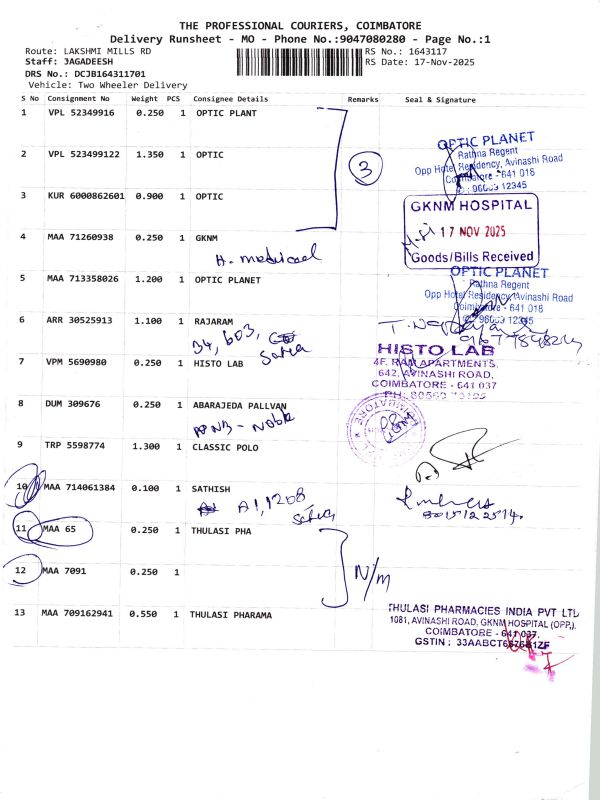 THE PROFESSIONAL COURIERS, COIMBATORE
Delivery Runsheet - MO - Phone No.:9047080280 - Page No.:1
Route: LAKSHMI MILLS RD
RS No.: 1643117
Staff: JAGADEESH
RS Date: 17-Nov-2025
DRS No.: DCJB164311701
Vehicle: Two Wheeler Delivery
S No Consignment No Weight PCS Consignee Details Remarks Seal & Signature
1 VPL 52349916 0.250 1 OPTIC PLANT
2 VPL 523499122 1.350 1 OPTIC
3
OPTIC PLANET
Rathna Regent
Opp Hotel Residency, Avinashi Road
Coimbatore - 641 018
: 96003 12345
3 KUR 6000862601 0.900 1 OPTIC
GKNM HOSPITAL
17 NOV 2025
Goods/Bills Received
4 MAA 71260938 0.250 1 GKNM
H. medical
5 MAA 713358026 1.200 1 OPTIC PLANET
OPTIC PLANET
Rathna Regent
Opp Hotel Residency, Avinashi Road
Coimbatore - 641 018
: 96003 12345
6 ARR 30525913 1.100 1 RAJARAM
34, 603,
7 VPM 5690980 0.250 1 HISTO LAB
HISTO LAB
4F, RAM APARTMENTS,
642, AVINASHI ROAD,
COIMBATORE - 641 037
8 DUM 309676 0.250 1 ABARAJEDA PALLVAN
COIMBATORE
9 TRP 5598774 1.300 1 CLASSIC POLO
10 MAA 714061384 0.100 1 SATHISH
A1, 1208
11 MAA 65 0.250 1 THULASI PHA
12 MAA 7091 0.250 1
N/m
13 MAA 709162941 0.550 1 THULASI PHARAMA
THULASI PHARMACIES INDIA PVT LTD
1081, AVINASHI ROAD, GKNM HOSPITAL (OPP.),
COIMBATORE - 641 037.
GSTIN :